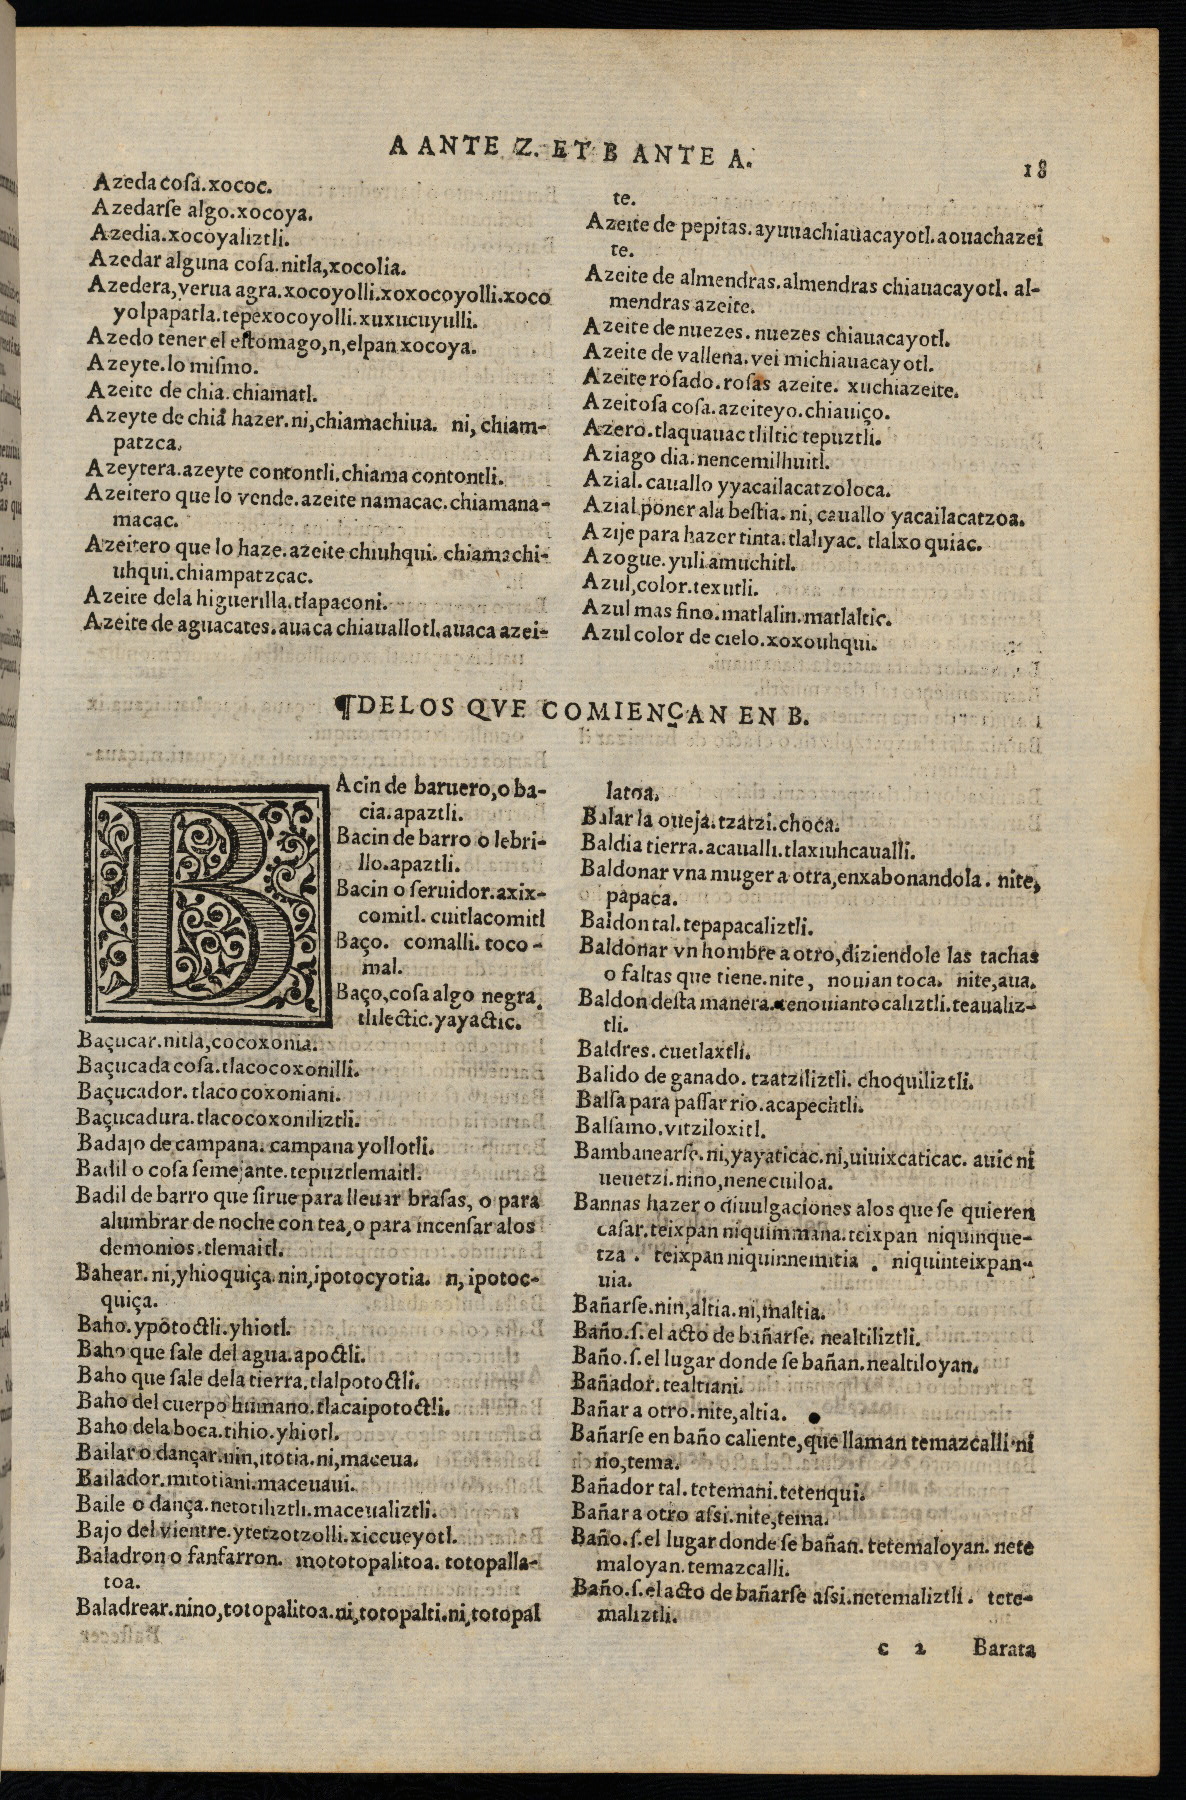 A ANTE Z. ET B ANTE A.
18
Azeda cosa.xococ.
Azedarse algo.xocoya.
Azedia.xocoyaliztli.
Azedar alguna cosa.nitla,xocolia.
Azedera,verua agra.xocoyolli.xoxocoyolli.xoco
yolpapatla.tepexocoyolli.xuxucuyulli.
Azedo tener el estomago,n,elpan xocoya.
Azeyte.lo mismo.
Azeite de chia.chiamatl.
Azeyte de chia hazer.ni,chiamachiua. ni,chiam-
patzca.
Azeytera.azeyte contontli.chiama contontli.
Azeitero que lo vende.azeite namacac.chiamana-
macac.
Azeitero que lo haze.azeite chiuhqui. chiamachi-
uhqui.chiampatzcac.
Azeite dela higuerilla.tlapaconi.
Azeite de aguacates.auaca chiauallotl.auaca azei-
te.
Azeite de pepitas.ayuuachiauacayotl.aouachazei
te.
Azeite de almendras.almendras chiauacayotl. al-
mendras azeite.
Azeite de nuezes. nuezes chiauacayotl.
Azeite de vallena.vei michiauacayotl.
Azeite rosado.rosas azeite. xuchiazeite.
Azeitosa cosa.azeiteyo.chiauiço.
Azero.tlaquauac tliltic tepuztli.
Aziago dia.nencemilhuitl.
Azial.cauallo yyacailacatzoloca.
Azial poner ala bestia.ni, cauallo yacailacatzoa.
Azije para hazer tinta.tlaliyac. tlalxoquiac.
Azogue.yuli amuchitl.
Azul,color.texutli.
Azul mas fino.matlalin.matlaltic.
Azul color de cielo.xoxouhqui.
¶DELOS QVE COMIENÇAN EN B.
BAcin de baruero,o ba-
cia.apaztli.
Bacin de barro o lebri-
llo.apaztli.
Bacin o seruidor.axix-
comitl. cuitlacomitl
Baço. comalli. toco-
mal.
Baço,cosa algo negra.
tlilectic.yayactic.
Baçucar.nitla,cocoxonia.
Baçucada cosa.tlacocoxonilli.
Baçucador. tlacocoxoniani.
Baçucadura.tlacocoxoniliztli.
Badajo de campana. campana yollotli.
Badil o cosa semejante.tepuztlemaitl.
Badil de barro que sirue para lleuar brasas, o para
alumbrar de noche con tea,o para incensar alos
demonios.tlemaitl.
Bahear. ni,yhioquiça.nin,ipotocyotia. n,ipotoc-
quiça.
Baho.ypotoctli.yhiotl.
Baho que sale del agua.apoctli.
Baho que sale dela tierra.tlalpotoctli.
Baho del cuerpo humano.tlacaipotoctli.
Baho dela boca.tihio.yhiotl.
Bailar o dançar.nin,itotia.ni,maceua.
Bailador.mitotiani.maceuani.
Baile o dança.netotiliztli.maceualiztli.
Bajo del vientre.ytetzotzolli.xiccueyotl.
Baladron o fanfarron. mototopalitoa. totopalla-
toa.
Baladrear.nino,totopalitoa.ni,totopalti.ni,totopal
latoa.
Balar la oueja.tzatzi.choca.
Baldia tierra.acaualli.tlaxiuhcaualli.
Baldonar vna muger a otra,enxabonandola. nite,
papaca.
Baldon tal.tepapacaliztli.
Baldonar vn hombre a otro,diziendole las tachas
o faltas que tiene.nite, nouian toca. nite,aua.
Baldon desta manera.tenouiantocaliztli.teaualiz-
tli.
Baldres.cuetlaxtli.
Balido de ganado. tzatziliztli. choquiliztli.
Balsa para passar rio.acapechtli.
Balsamo.vitziloxitl.
Bambanearse.ni,yayaticac.ni,uiuixcaticac. auic ni
ueuetzi.nino,nenecuiloa.
Bannas hazer o diuulgaciones alos que se quieren
casar.teixpan niquimmana.teixpan niquinque-
tza . teixpan niquinnemitia . niquinteixpan-
uia.
Bañarse.nin,altia.ni,maltia.
Baño.s.el acto de bañarse. nealtiliztli.
Baño.s.el lugar donde se bañan.nealtiloyan.
Bañador.tealtiani.
Bañar a otro.nite,altia.
Bañarse en baño caliente,que llaman temazcalli.ni
no,tema.
Bañador tal.tetemani.tetenqui.
Bañar a otro assi.nite,tema.
Baño.s.el lugar donde se bañan.tetemaloyan. nete
maloyan.temazcalli.
Baño.s.el acto de bañarse assi.netemaliztli. tete-
maliztli.
c 2 Barata